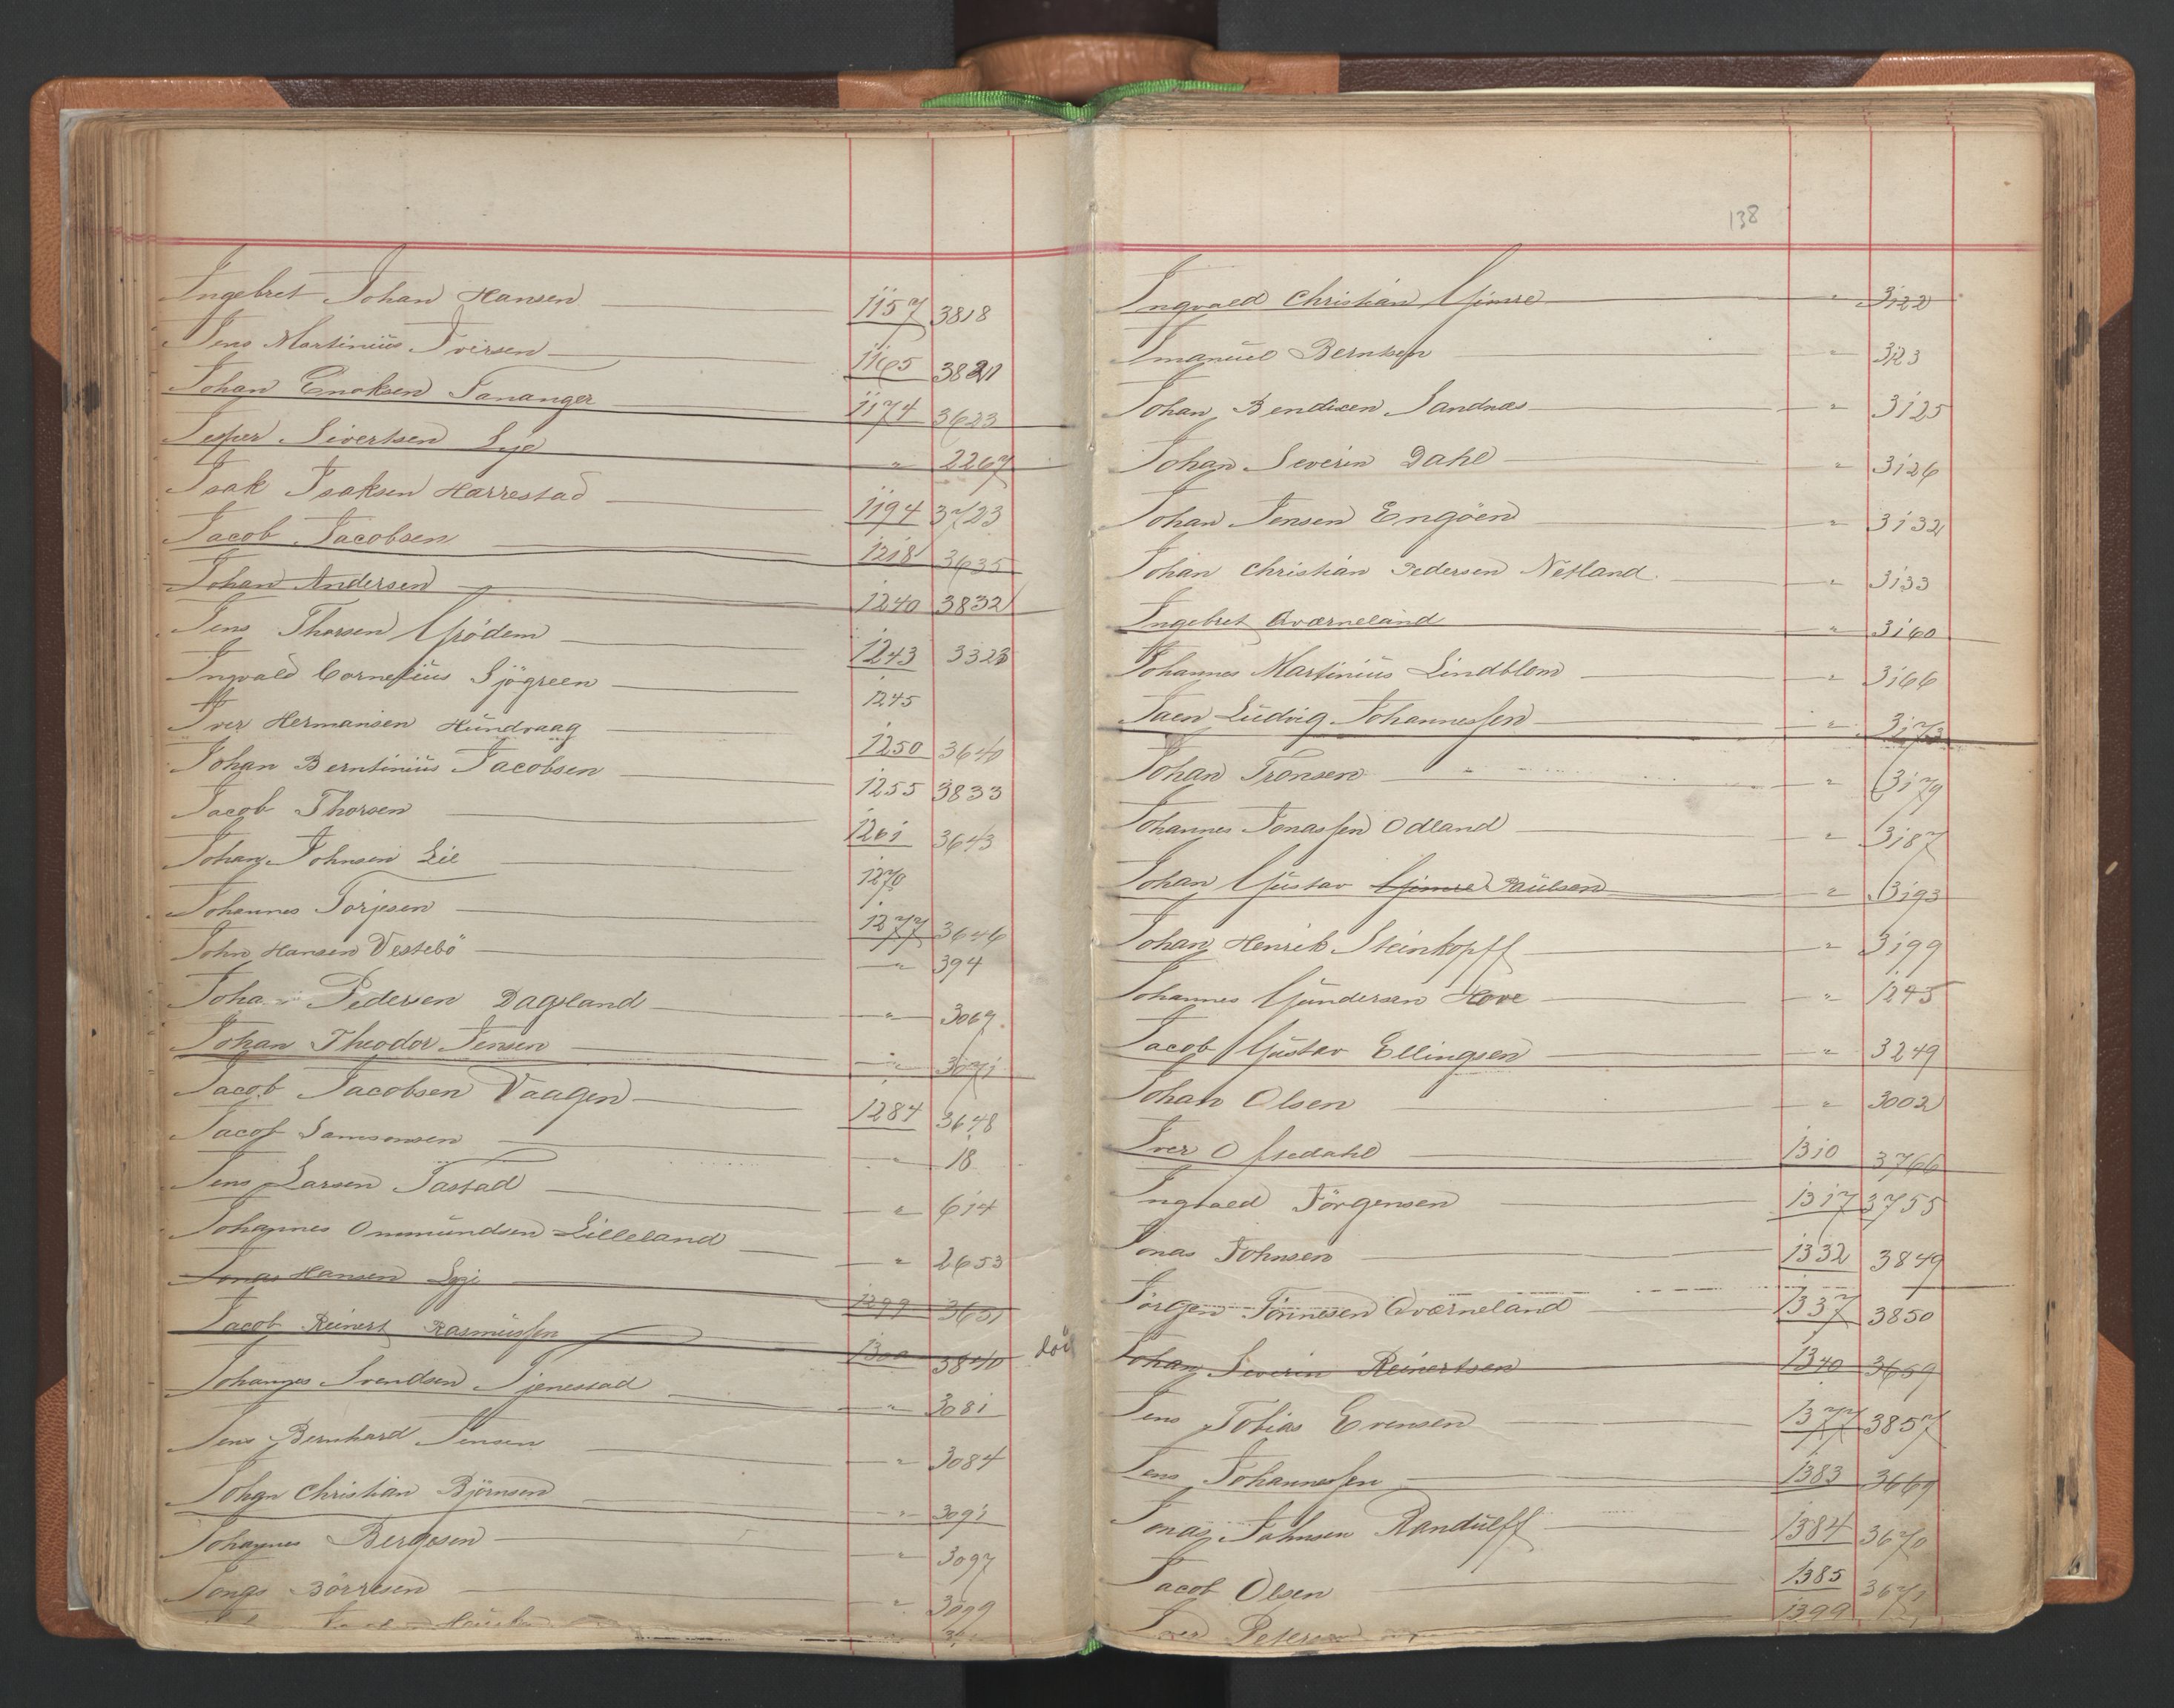 Ingebret Johan Hansen 1157 3818
Jens Martinius Iversen 1165 3821
Johan Enoksen Tananger 1174 3623
Jesper Sivertsen Lye " 2267
Isak Isaksen Harrestad 1194 3723
Jacob Jacobsen 1218 3635
Johan Andersen 1240 3832
Jens Thorsen Grödem 1243 3323
Ingvald Cornelius Sjögreen 1245
Iver Hermansen Hundvaag 1250 3640
Johan Berntinius Jacobsen 1255 3833
Jacob Thorsen 1261 3643
Johan Johnsen Lie 1270
Johannes Torjesen 1277 3646
John Hansen Vestebö " 394
Johan Pedersen Dagsland " 3069
Johan Theodor Jensen " 3071
Jacob Jacobsen Vaagen 1284 3648
Jacob Samsonsen " 18
Jens Larsen Tastad " 614
Johannes Ommundsen Lilleland " 2653
Jonas Hansen Lye 1299 3651
Jacob Reinert Rasmussen 1300 3840
Johannes Svendsen Tjenestad " 3081
Jens Bernhard Jensen " 3084
Johan Christian Björnsen " 3091
Johannes Bergesen " 3097
Jonas Börresen " 3099
138
Ingvald Christian Gimre " 3122
Imanuel Berntsen " 3123
Johan Bendixen Sandnæs " 3125
Johan Severin Dahl " 3126
Johan Jensen Engöen " 3132
Johan Christian Pedersen Netland " 3133
Ingebret Qværneland " 3160
Johannes Martinius Lindblom " 3166
Jaen Ludvig Johannessen " 3173
Johan Tronsen " 3179
Johannes Jonassen Odland " 3187
Johan Gustav Gimre Paulsen " 3193
Johan Henrik Steinkopff " 3199
Johannes Gundersen Hove " 1245
Jacob Gustav Ellingsen " 3249
Johan Olsen " 3002
Iver O Assedahl 1310 3766
Ingvald Jörgensen 1317 3755
Jonas Johnsen 1332 3849
Jörgen Tönnesen Qværneland 1337 3850
död Johan Severin Reinertsen 1340 3659
Jens Tobias Evensen 1377 3857
Jens Johannessen 1383 3669
Jonas Johnsen Randulff 1384 3670
Jacob Olsen 1385 3671
Iver Petersen 1399